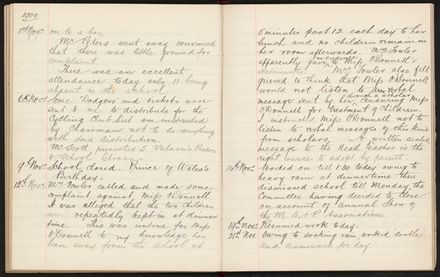 1900
1st Nov. on to a boy.
Mr Peters went away convinced
that there was little ground for
complaint.
There was an excellent
attendance today only 11 being
absent in the school.
6th Nov. Some Badges and tickets were
sent to me to distribute for the
Cycling Club but am instructed
by Chairman not to do anything
with said distribution.
Mr Scott presented
to school library.
9th Nov. School closed. Prince of Wales's
Birthday.
12th Nov. Mrs Fowler called and made some
complaint against Miss O'Donnell.
It was alleged that the two children
were repeatedly kept in at dinner
time. This was untrue for Miss
O'Donnell to my knowledge has
been away from the school at
5 minutes past 12 each day to her
lunch and no children remain in
her room afterwards. Mrs Fowler
apparently to Miss O'Donnell's
Mrs Fowler also felt
grieved to think that Miss O'Donnell
would not listen to an verbal
message sent by her, through a scholar, censuring Miss
O'Donnell for treatment of children.
I instructed Miss O'Donnell not to
listen to verbal messages of this kind
from scholars. A written
message to the Head Teacher is the
right course to adopt by parent.
14th Nov. Worked on till 1.30 today owing to
heavy rain at dinnertime then
dismissed school till Monday, the
Committee having decided to close
on account of Annual Show of
the M. A. & P. Association.
19th Nov. Resumed work today.
21st Nov. Owing to soaking rain worked
and dismissed for day.